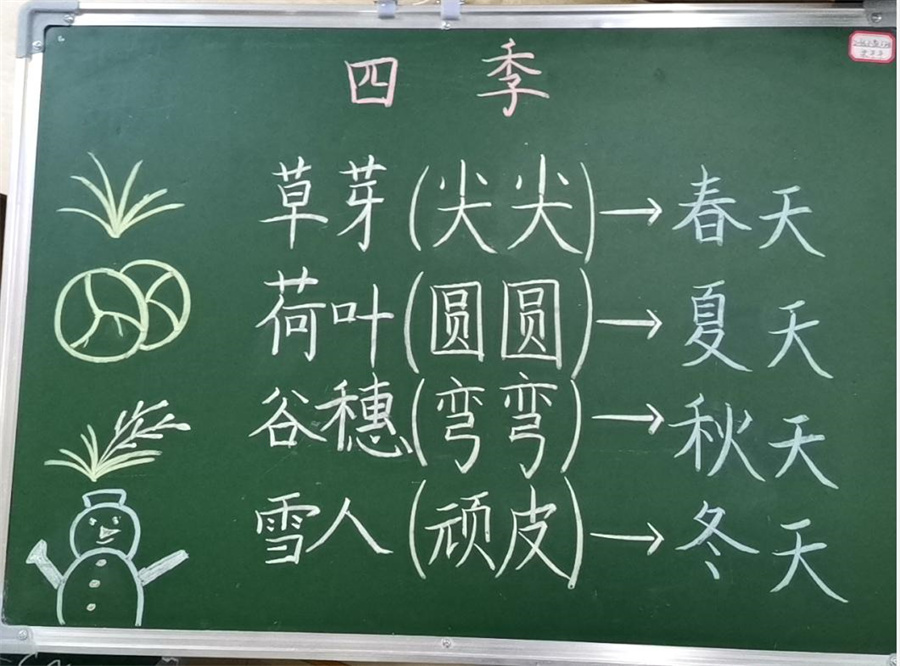 四 季
草芽(尖尖)→春天
荷叶(圆圆)→夏天
谷穗(弯弯)→秋天
雪人(顽皮)→冬天